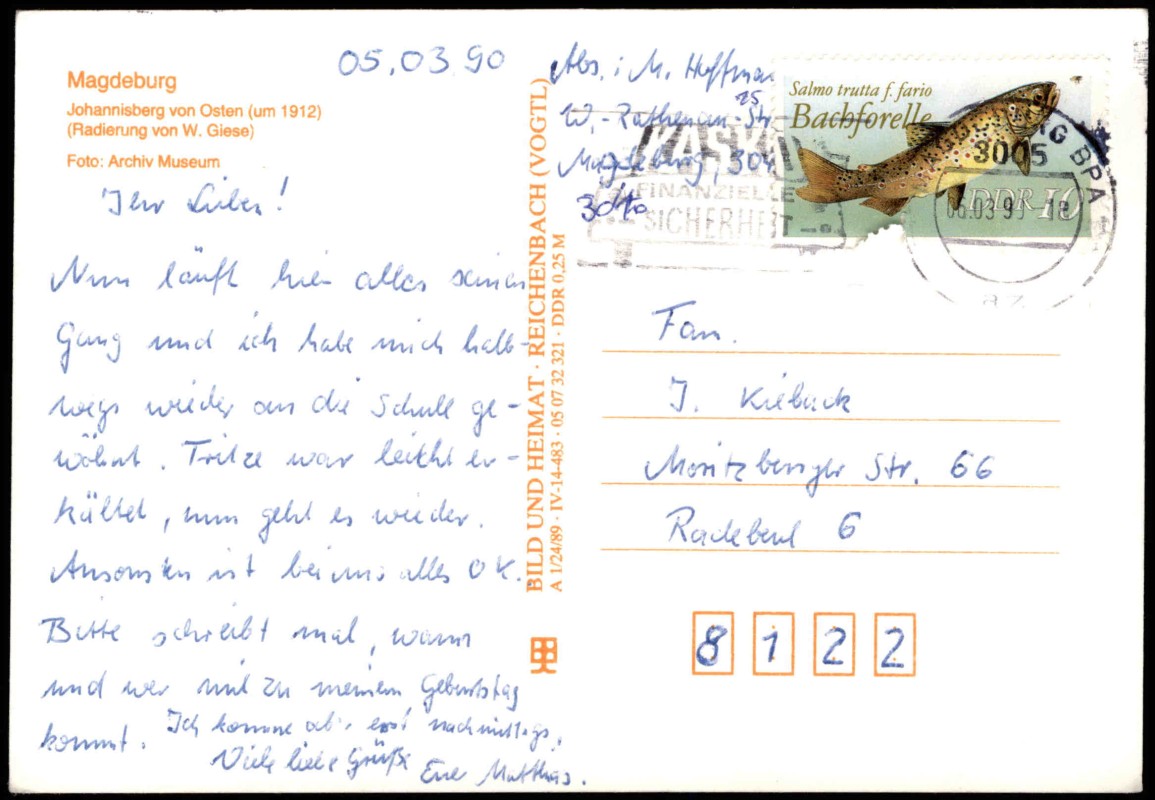 05.03.90
Magdeburg
Johannisberg von Osten (um 1912)
(Radierung von W. Giese)
Foto: Archiv Museum
Ihr Lieben!
Nun läuft hier alles seinen
Gang und ich habe mich halb-
wegs wieder an die Schule ge-
wöhnt. Tritze war leicht er-
kältet, nun geht es wieder.
Ansonsten ist bei uns alles OK.
Bitte schreibt mal, wann
und wer mit zu meinem Geburtstag
kommt. Ich komme aber erst nachmittags.
Viele liebe Grüße Euer Matthias.
BILD UND HEIMAT · REICHENBACH (VOGTL)
A 1/24/89 · IV-14-483 · 05 07 32 321 · DDR 0,25 M
Abs.: M. Hoffman
25
W.-Rathenau-Str.
Magdeburg, 304
3040
FINANZIELLE
SICHERHEIT
Salmo trutta f. fario
Bachforelle
DDR 10
3005
BPA
06.03.9 -18
az
Fam.
J. Kieback
Moritzburger Str. 66
Radebeul 6
8122